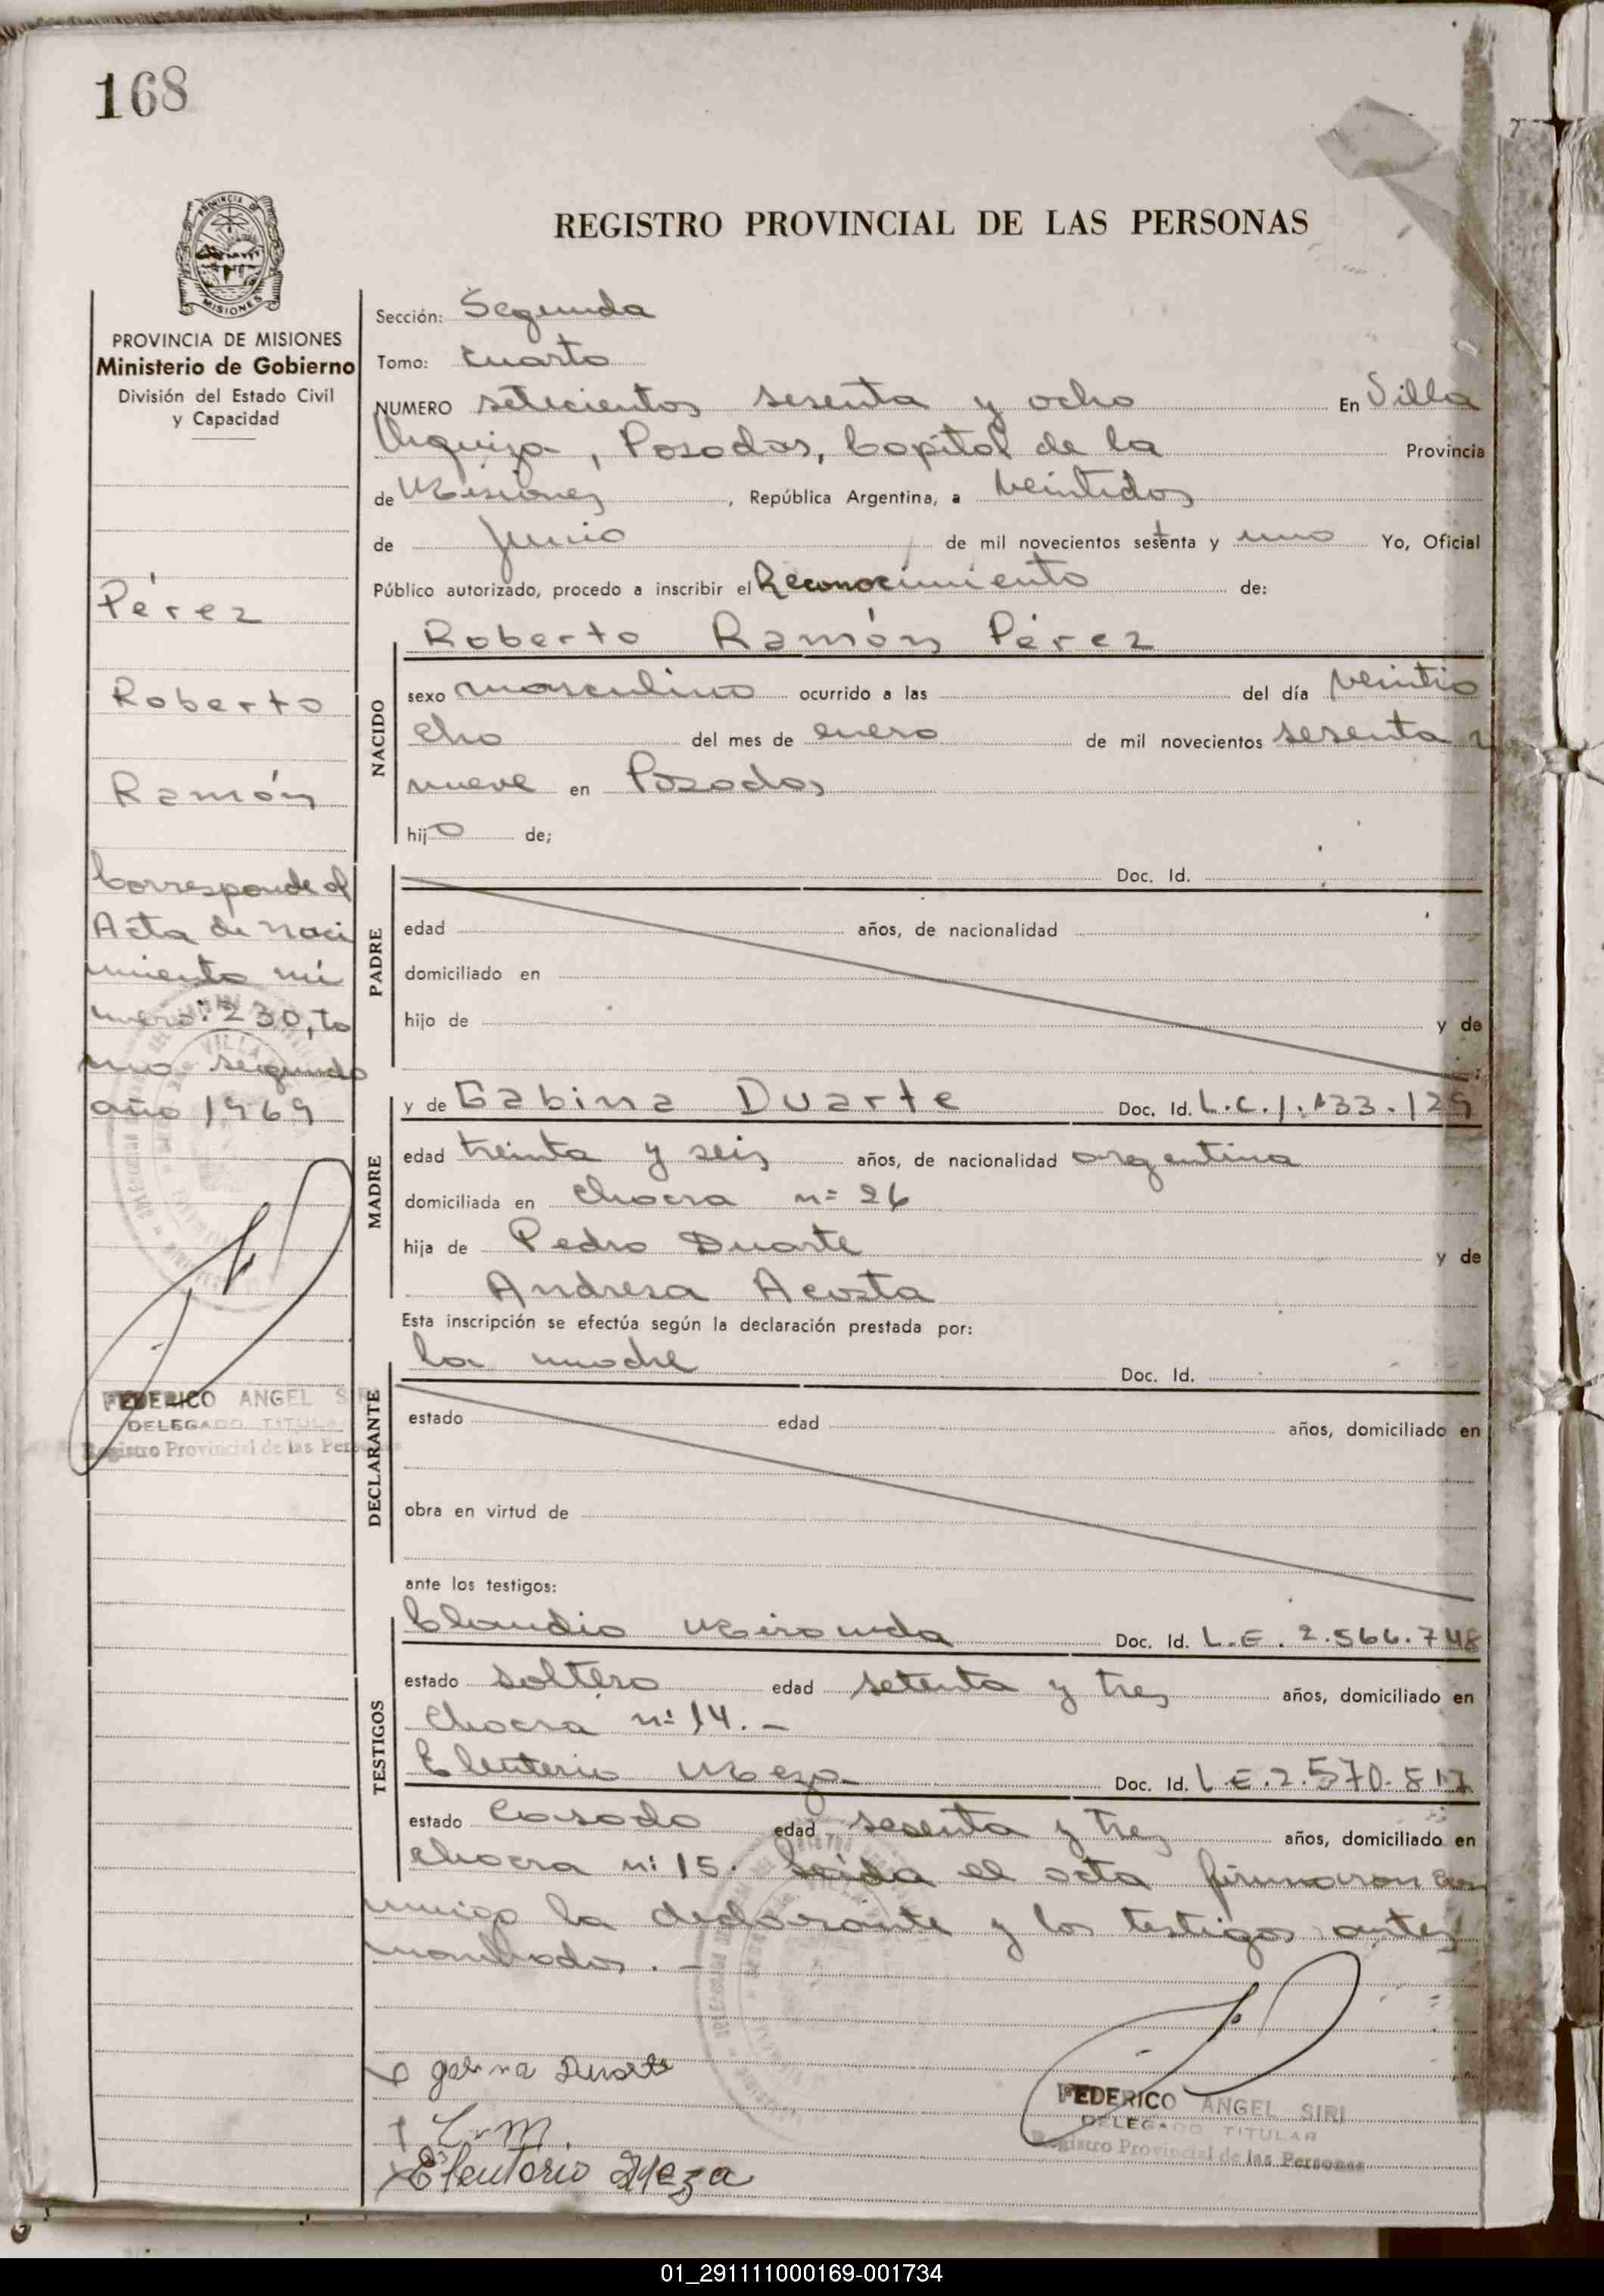 168
REGISTRO PROVINCIAL DE LAS PERSONAS
PROVINCIA DE
MISIONES
PROVINCIA DE MISIONES
Ministerio de Gobierno
División del Estado Civil
y Capacidad
Sección: Segunda
Tomo: Cuarto
NUMERO setecientos sesenta y ocho En Villa
Urquiza, Posadas, Capital de la Provincia
de Misiones, República Argentina, a veintidos
de Junio de mil novecientos setenta y uno Yo, Oficial
Público autorizado, procedo a inscribir el Reconocimiento de:
Pérez
Roberto
Ramón
Corresponde al
Acta de naci
miento nú
mero: 230, to
mo segundo
año 1969
FEDERICO ANGEL SIRI
DELEGADO TITULAR
Registro Provincial de las Personas
NACIDO
Roberto Ramón Pérez
sexo masculino ocurrido a las del día veintio
cho del mes de enero de mil novecientos sesenta y
nueve en Posadas
hijo de;
PADRE
Doc. Id.
edad años, de nacionalidad
domiciliado en
hijo de y de
MADRE
y de Gabina Duarte Doc. Id. L.C. 1.133.129
edad treinta y seis años, de nacionalidad argentina
domiciliada en chacra nº 26
hija de Pedro Duarte y de
Andresa Acosta
Esta inscripción se efectúa según la declaración prestada por:
DECLARANTE
la madre Doc. Id.
estado edad años, domiciliado en
obra en virtud de
ante los testigos:
TESTIGOS
Claudio Miranda Doc. Id. L.E. 2.566.748
estado soltero edad setenta y tres años, domiciliado en
chacra nº 14. –
Eleuterio Meza Doc. Id. L.E. 2.570.817
estado casado edad sesenta y tres años, domiciliado en
chacra nº 15. Leída el acta firmaron con
migo la declarante y los testigos antes
nombrados. –
gabina Duarte
C. M.
Eleuterio Meza
FEDERICO ANGEL SIRI
DELEGADO TITULAR
Registro Provincial de las Personas
01_291111000169-001734